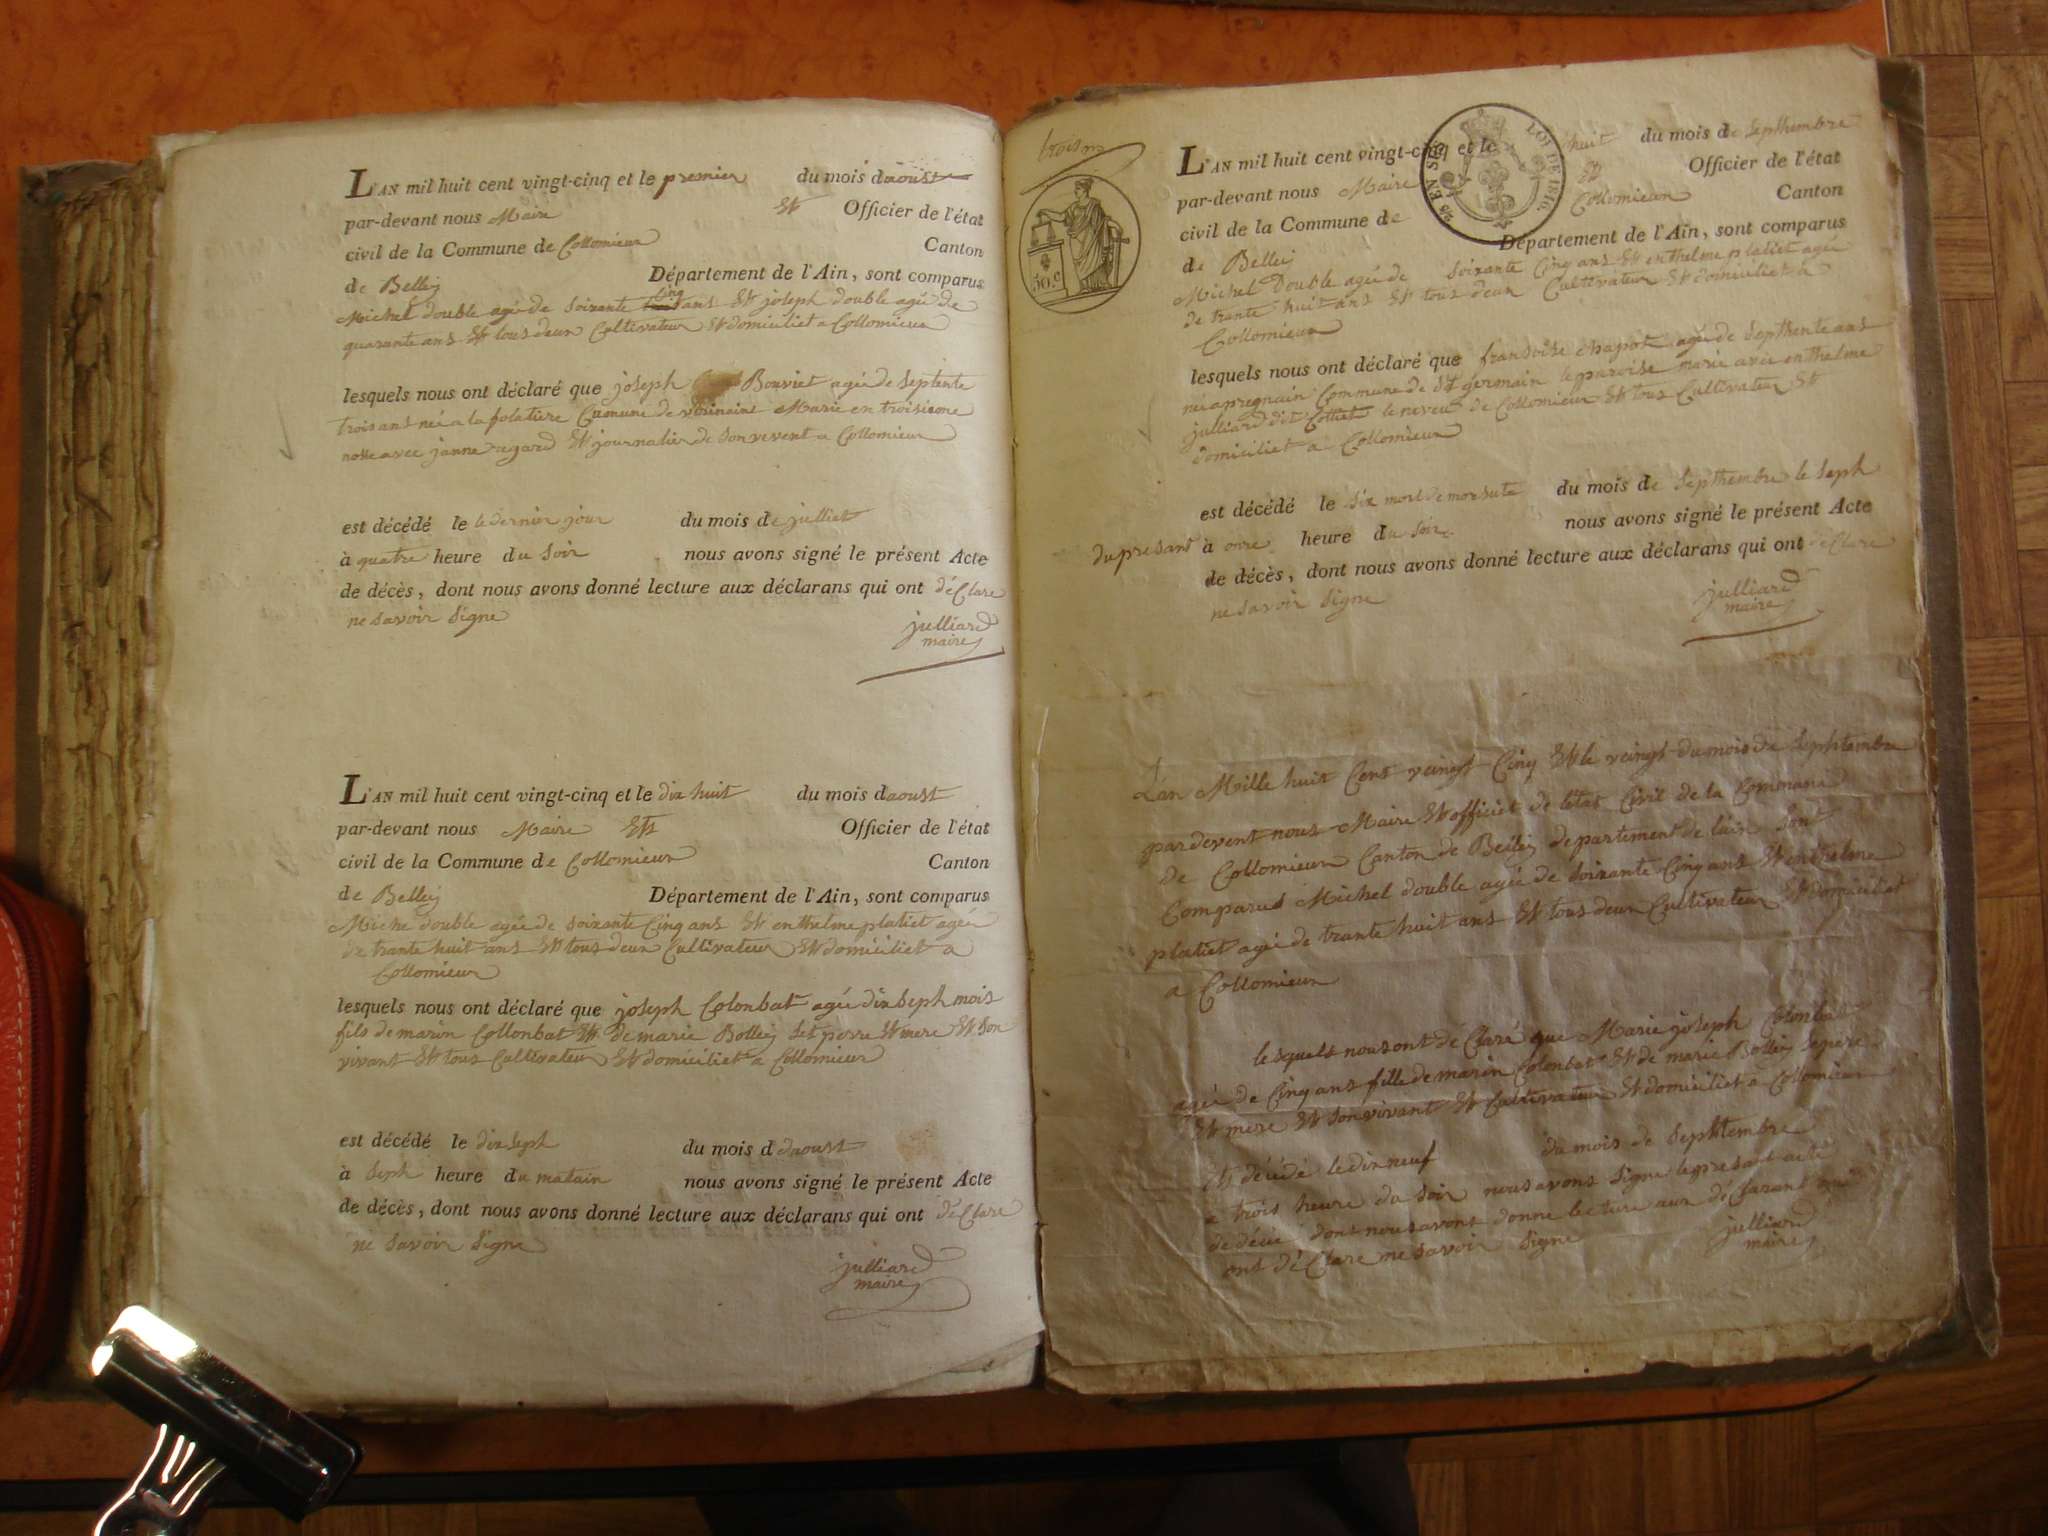 L'AN mil huit cent vingt-cinq et le premier du mois daoust
par-devant nous Maire Et Officier de l'état
civil de la Commune de Collomieux Canton
de Belley Département de l'Ain, sont comparus
Michel double agée de soixante cinq ans Et joseph double agée de
quarante ans Et tous deux Cultivateur Et domiciliet a Collomieux
lesquels nous ont déclaré que joseph Bouviet agée de septente
trois ans né a la folatiere Commune de Marie en troisieme
nosse avec janne regard Et journalier de son vivent a Collomieux
est décédé le le dernier jour du mois de julliet
à quatre heure du soir nous avons signé le présent Acte
de décès, dont nous avons donné lecture aux déclarans qui ont déClare
ne savoir signe
julliard
maire
L'AN mil huit cent vingt-cinq et le dix huit du mois daoust
par-devant nous Maire Et Officier de l'état
civil de la Commune de Collomieux Canton
de Belley Département de l'Ain, sont comparus
Miche double agée de soixante Cinq ans Et enthelme platiet agée
de trante huit ans Et tous deux Cultivateur Et domiciliet a
Collomieux
lesquels nous ont déclaré que joseph Colonbat agée dix seph mois
fils de marin Collonbat Et de marie Bolley set perre Et mere Et son
vivant Et tous Cultivateur Et domiciliet a Collomieux
est décédé le dix seph du mois d daoust
à seph heure du matain nous avons signé le présent Acte
de décès, dont nous avons donné lecture aux déclarans qui ont déClare
ne savoir signe
julliard
maire
trois
50 c
EN SUS LOI DE 1816.
L'AN mil huit cent vingt-cinq et le huit du mois de septhembre
par-devant nous Maire Et Officier de l'état
civil de la Commune de Collomieux Canton
de Belley Département de l'Ain, sont comparus
Michel Double agée de soixante Cinq ans Et enthelme platiet agée
de trante huit ans Et tous deux Cultivateur Et domiciliet a
Collomieux
lesquels nous ont déclaré que fransoise chapot agée de septhente ans
né a pregnain Commune de St germain le paroise marie avec enthelme
julliard dit Colliet le neveu de Collomieux Et tous Cultivateur Et
domiciliet a Collomieux
est décédé le six mort de mort du mois de septhembre le seph
du presant à onze heure du soir nous avons signé le présent Acte
de décès, dont nous avons donné lecture aux déclarans qui ont déClare
ne savoir signe
julliard
maire
L'an Mille huit Cent veingt Cinq Et le veingt du mois de septhembre
par devent nous Maire Et officiet de létat Civil de la Commune
de Collomieux Canton de Belley departement de lain sont
Comparus Michel double agée de soixante Cinq ans Et enthelme
platiet agée de trante huit ans Et tous deux Cultivateur Et domiciliet
a Collomieux
lesquels nous ont déClaré que Marie joseph Colonbat
agée de Cinq ans fille de marin Colonbat Et de marie Bolley se pere
Et mere Et son vivant Et Cultivateur Et domiciliet a Collomieux
Et décédé le dix neuf du mois de septhembre
a trois heure du soir nous avons signe le presant acte
de décé dont nous avons donne lecture aux déClarant qui
ont déClare ne savoir signe
julliard
maire